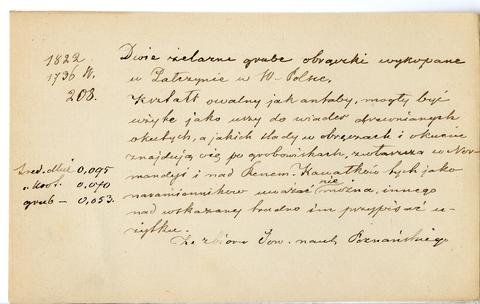 1822
1736 N.
208.
Dwie żelazne grube obrączki wykopane
w Pałczynie w W-Polsce.
Kształt owalny jak antaby, mogły być
użyte jako uszy do wiader drewnianych
okutych, a jakich ślady w obręczach i okuciu
znajdują się po grobowiskach, zwłaszcza w Nor-
mandyi i nad Renem. Kawałków tych jako
naramienników uważać nie można, innego
nad wskazany trudno im przypisać u-
żytku.
Ze zbioru Tow. nauk Poznańskiego.
Śred. dłuż 0,095
" król. 0,070
grub – 0,053.